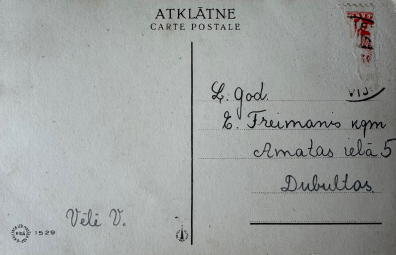 ATKLĀTNE
CARTE POSTALE
L. god.
E. Freimanis kgm
Amatas ielā 5
Dubultos
Vēlē V.
1529